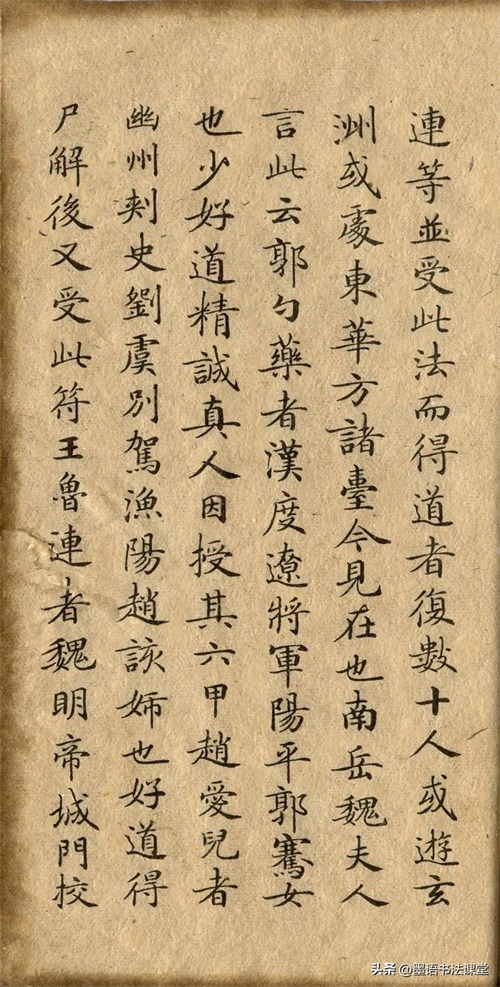 連等並受此法而得道者復數十人或遊玄
洲或處東華方諸臺今見在也南岳魏夫人
言此云郭勺藥者漢度遼將軍陽平郭騫女
也少好道精誠真人因授其六甲趙愛兒者
幽州刾史劉虞別駕漁陽趙該姉也好道得
尸解後又受此符王魯連者魏明帝城門校
头条 @墨语书法课堂